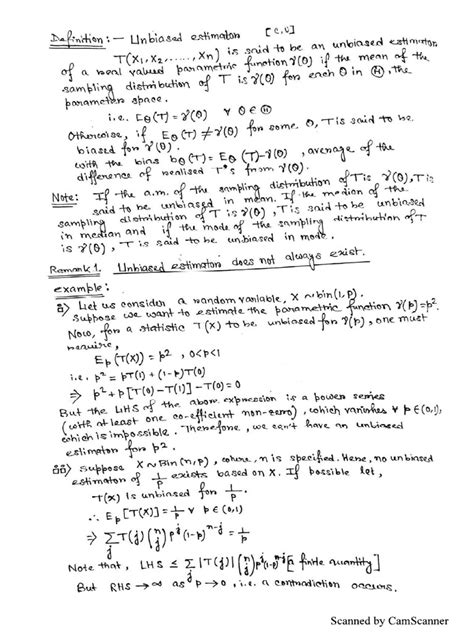 Definition :— Unbiased estimator [C.U]
T(X₁, X₂, ....., Xn) is said to be an unbiased estimator
of a real valued parametric function γ(θ) if the mean of the
sampling distribution of T is γ(θ) for each θ in Ⓗ, the
parameter space.
i.e. Eθ(T) = γ(θ) ∀ θ ∈ Ⓗ
Otherwise, if Eθ(T) ≠ γ(θ) for some θ, T is said to be
biased for γ(θ).
with the bias bθ(T) = Eθ(T) - γ(θ), average of the
difference of realised T's from γ(θ).
Note: If the a.m. of the sampling distribution of T is γ(θ), T is
said to be unbiased in mean. If the median of the
sampling distribution of T is γ(θ), T is said to be unbiased
in median and if the mode of the sampling distribution of T
is γ(θ), T is said to be unbiased in mode.
Remark 1. Unbiased estimator does not always exist.
example:
i) Let us consider a random variable, X ~ bin(1, p).
Suppose we want to estimate the parametric function γ(p) = p².
Now, for a statistic T(X) to be unbiased for γ(p), one must
require,
Ep(T(X)) = p², 0<p<1
i.e. p² = pT(1) + (1-p)T(0)
⇒ p² + p[T(0) - T(1)] - T(0) = 0
But the LHS of the above expression is a power series
(with at least one co-efficient non-zero), which vanishes ∀ p ∈ (0,1),
which is impossible. Therefore, we can't have an unbiased
estimator for p².
ii) Suppose X ~ Bin(n, p), where, n is specified. Here, no unbiased
estimator of 1/p exists based on X. If possible let,
T(X) is unbiased for 1/p.
∴ Ep[T(X)] = 1/p ∀ p ∈ (0,1)
⇒ Σj T(j) (n j) p^j (1-p)^n-j = 1/p
Note that, LHS ≤ Σ |T(j)| (n j) p^j (1-p)^n-j [a finite quantity]
But RHS → ∞ as p → 0, i.e. a contradiction occurs.
Scanned by CamScanner